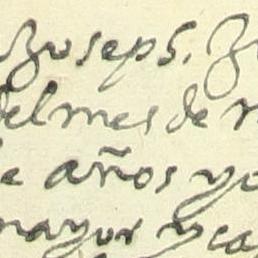 Joseph.
del mes de
años yo
mayor y ca